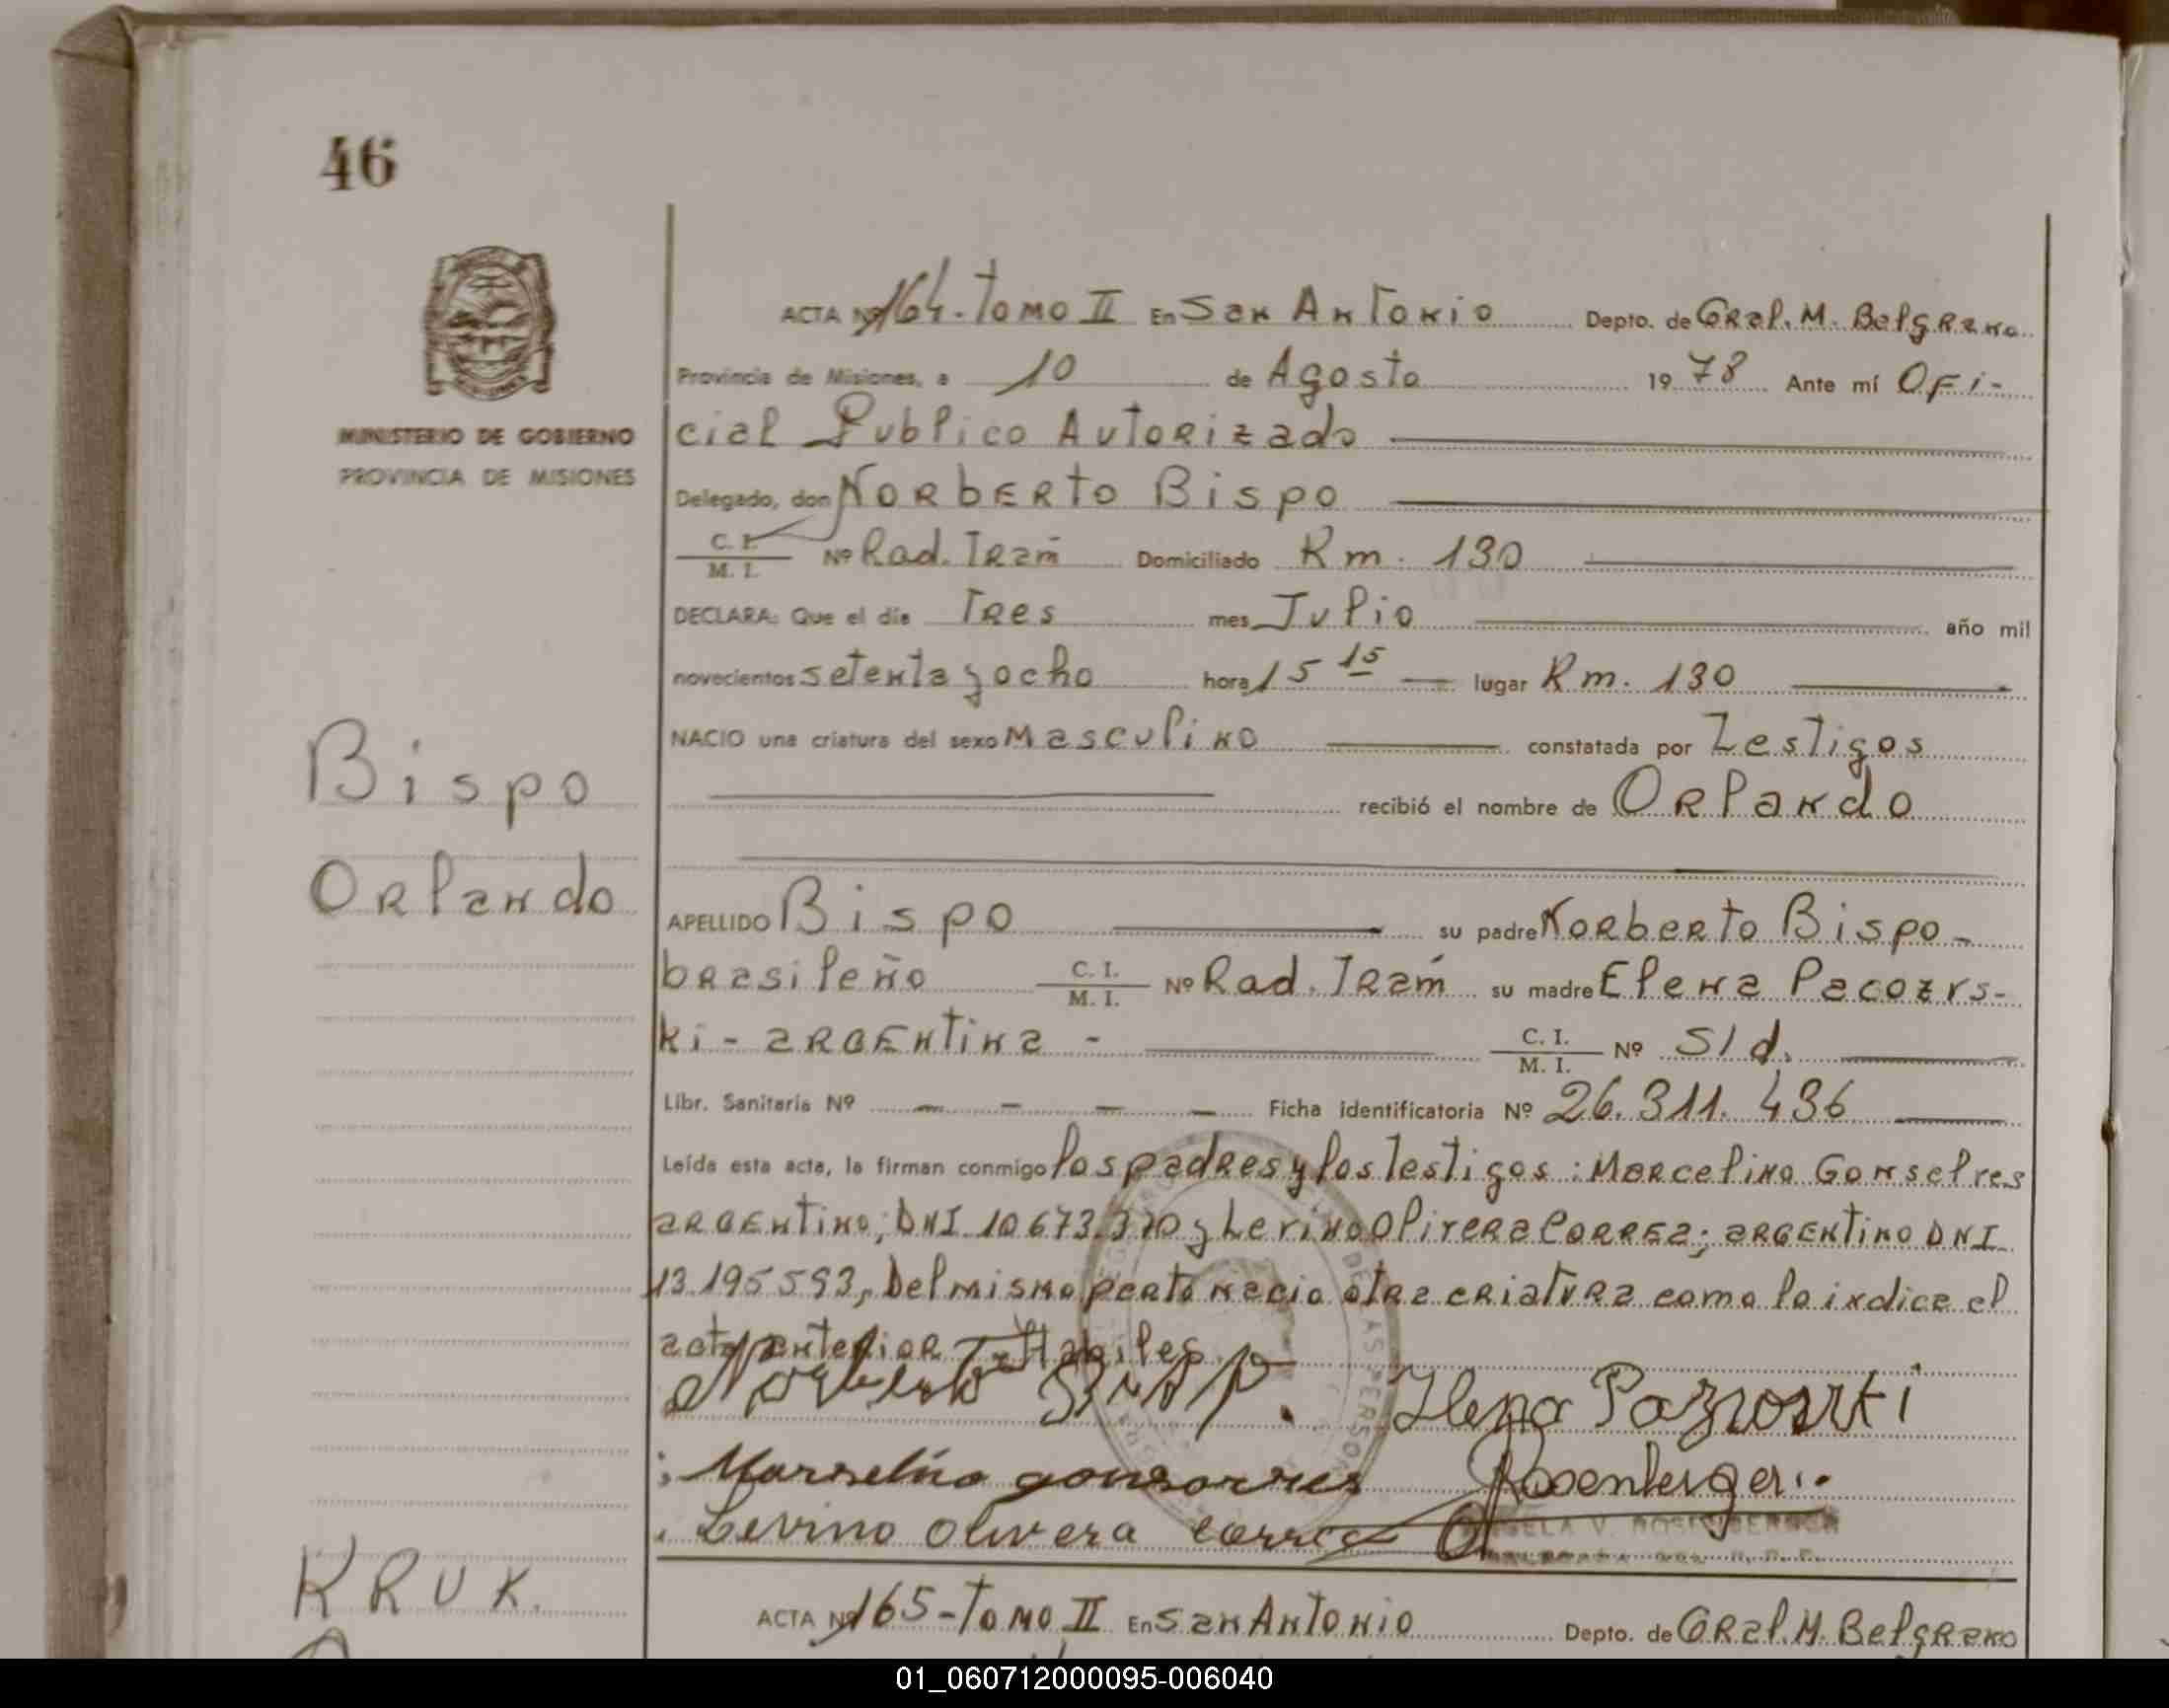 46
ACTA Nº 164. Tomo II En San Antonio Depto. de Gral. M. Belgrano
Provincia de Misiones, a 10 de Agosto 1978 Ante mí Ofi-
cial Publico Autorizado
MINISTERIO DE GOBIERNO
PROVINCIA DE MISIONES
Delegado, don Norberto Bispo
C. I. / M. I. Nº Rad. Tram Domiciliado Km. 130
DECLARA: Que el día Tres mes Julio año mil
novecientos setenta y ocho hora 15 15 lugar Km. 130
NACIO una criatura del sexo Masculino constatada por Testigos
Bispo
recibió el nombre de Orlando
Orlando
APELLIDO Bispo su padre Norberto Bispo -
brasileño C. I. / M. I. Nº Rad. Tram su madre Elena Pacozvs-
ki - argentina - C. I. / M. I. Nº S/d.
Libr. Sanitaria Nº - - - - Ficha identificatoria Nº 26.311.436
Leída esta acta, la firman conmigo los padres y los Testigos: Marcelino Gonsalves
argentino; DNI 10673.370 y Levino Olivera Correa; argentino DNI
13.195593, Del mismo parto nacio otra criatura como lo indica el
acta anterior - Habiles
Norberto Bispo. Elena
Marselino Rosenberger
Levino Olivera Correa
ANGELA V. ROSENBERGER
KRUK.
ACTA Nº 165 - Tomo II En San Antonio Depto. de Gral. M. Belgrano
01_060712000095-006040